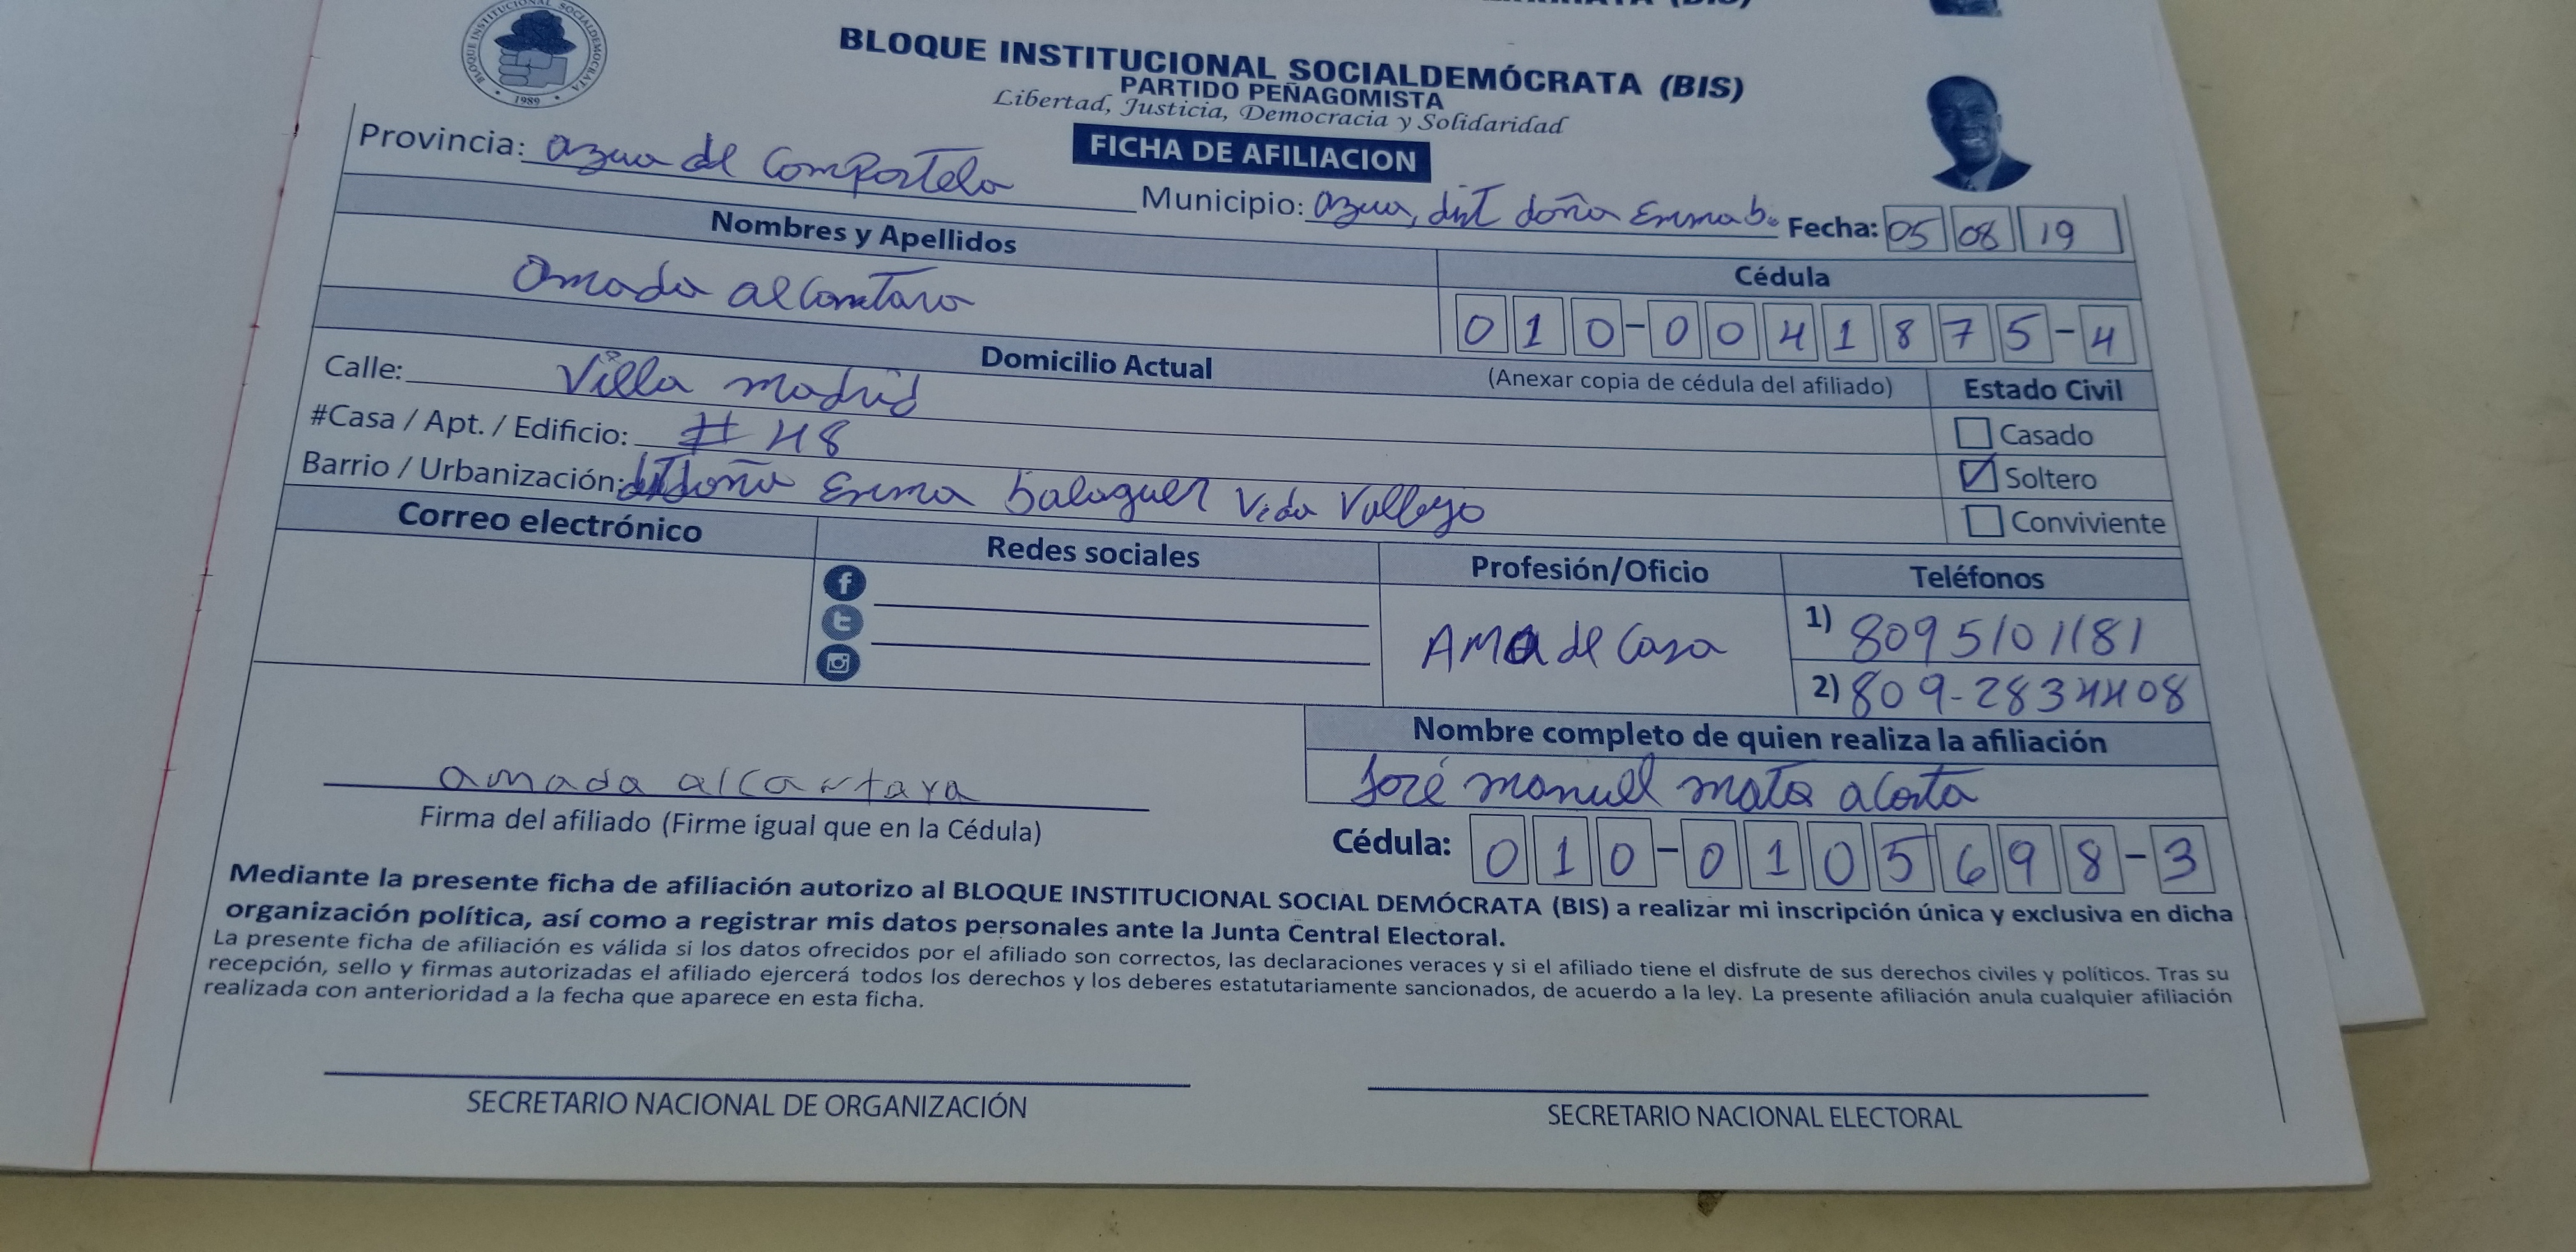 BLOQUE INSTITUCIONAL SOCIALDEMOCRATA
1989
BLOQUE INSTITUCIONAL SOCIALDEMÓCRATA (BIS)
PARTIDO PEÑAGOMISTA
Libertad, Justicia, Democracia y Solidaridad
FICHA DE AFILIACION
Provincia: azua de Compostela
Municipio: azua, dist doña Emma b. Fecha: 05 08 19
Nombres y Apellidos
Cédula
amada alcantara
010-0041875-4
Domicilio Actual
(Anexar copia de cédula del afiliado)
Estado Civil
Calle: Villa madrid
Casado
#Casa / Apt. / Edificio: # 48
Soltero
Barrio / Urbanización: doña Emma balaguer Vida Vallejo
Conviviente
Correo electrónico
Redes sociales
Profesión/Oficio
Teléfonos
AMA de Casa
1) 8095101181
2) 809-2834408
Nombre completo de quien realiza la afiliación
José manuel mata acosta
amada alcantara
Firma del afiliado (Firme igual que en la Cédula)
Cédula: 010-0105698-3
Mediante la presente ficha de afiliación autorizo al BLOQUE INSTITUCIONAL SOCIAL DEMÓCRATA (BIS) a realizar mi inscripción única y exclusiva en dicha
organización política, así como a registrar mis datos personales ante la Junta Central Electoral.
La presente ficha de afiliación es válida si los datos ofrecidos por el afiliado son correctos, las declaraciones veraces y si el afiliado tiene el disfrute de sus derechos civiles y políticos. Tras su
recepción, sello y firmas autorizadas el afiliado ejercerá todos los derechos y los deberes estatutariamente sancionados, de acuerdo a la ley. La presente afiliación anula cualquier afiliación
realizada con anterioridad a la fecha que aparece en esta ficha.
SECRETARIO NACIONAL DE ORGANIZACIÓN
SECRETARIO NACIONAL ELECTORAL